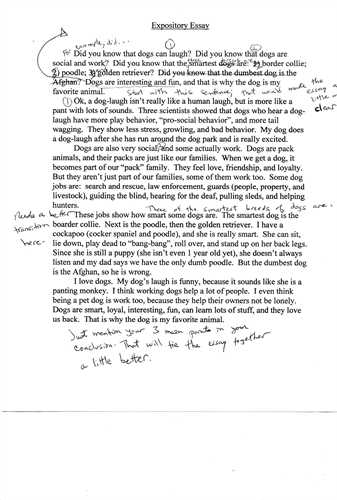 Expository Essay
example, did...
①
②
Did you know that dogs can laugh? Did you know that dogs are
social and work? Did you know that the smartest dogs are: 1) border collie;
2) poodle; 3) golden retriever? Did you know that the dumbest dog is the
Afghan? Dogs are interesting and fun, and that is why the dog is my
favorite animal. Start with this sentence; that would make the essay a little clear
① Ok, a dog-laugh isn't really like a human laugh, but is more like a
pant with lots of sounds. Three scientists showed that dogs who hear a dog-
laugh have more play behavior, "pro-social behavior", and more tail
wagging. They show less stress, growling, and bad behavior. My dog does
a dog-laugh after she has run around the dog park and is really excited.
Dogs are also very social, and some actually work. Dogs are pack
animals, and their packs are just like our families. When we get a dog, it
becomes part of our "pack" family. They feel love, friendship, and loyalty.
But they aren't just part of our families, some of them work too. Some dog
jobs are: search and rescue, law enforcement, guards (people, property, and
livestock), guiding the blind, hearing for the deaf, pulling sleds, and helping
hunters. Three of the smartest breeds of dogs are.
Needs a better transition here.
These jobs show how smart some dogs are. The smartest dog is the
boarder collie. Next is the poodle, then the golden retriever. I have a
cockapoo (cocker spaniel and poodle), and she is really smart. She can sit,
lie down, play dead to "bang-bang", roll over, and stand up on her back legs.
Since she is still a puppy (she isn't even 1 year old yet), she doesn't always
listen and my dad says we have the only dumb poodle. But the dumbest dog
is the Afghan, so he is wrong.
I love dogs. My dog's laugh is funny, because it sounds like she is a
panting monkey. I think working dogs help a lot of people. I even think
being a pet dog is work too, because they help their owners not be lonely.
Dogs are smart, loyal, interesting, fun, can learn lots of stuff, and they love
us back. That is why the dog is my favorite animal.
Just mention your 3 main points in your
conclusion. That will tie the essay together
a little better.